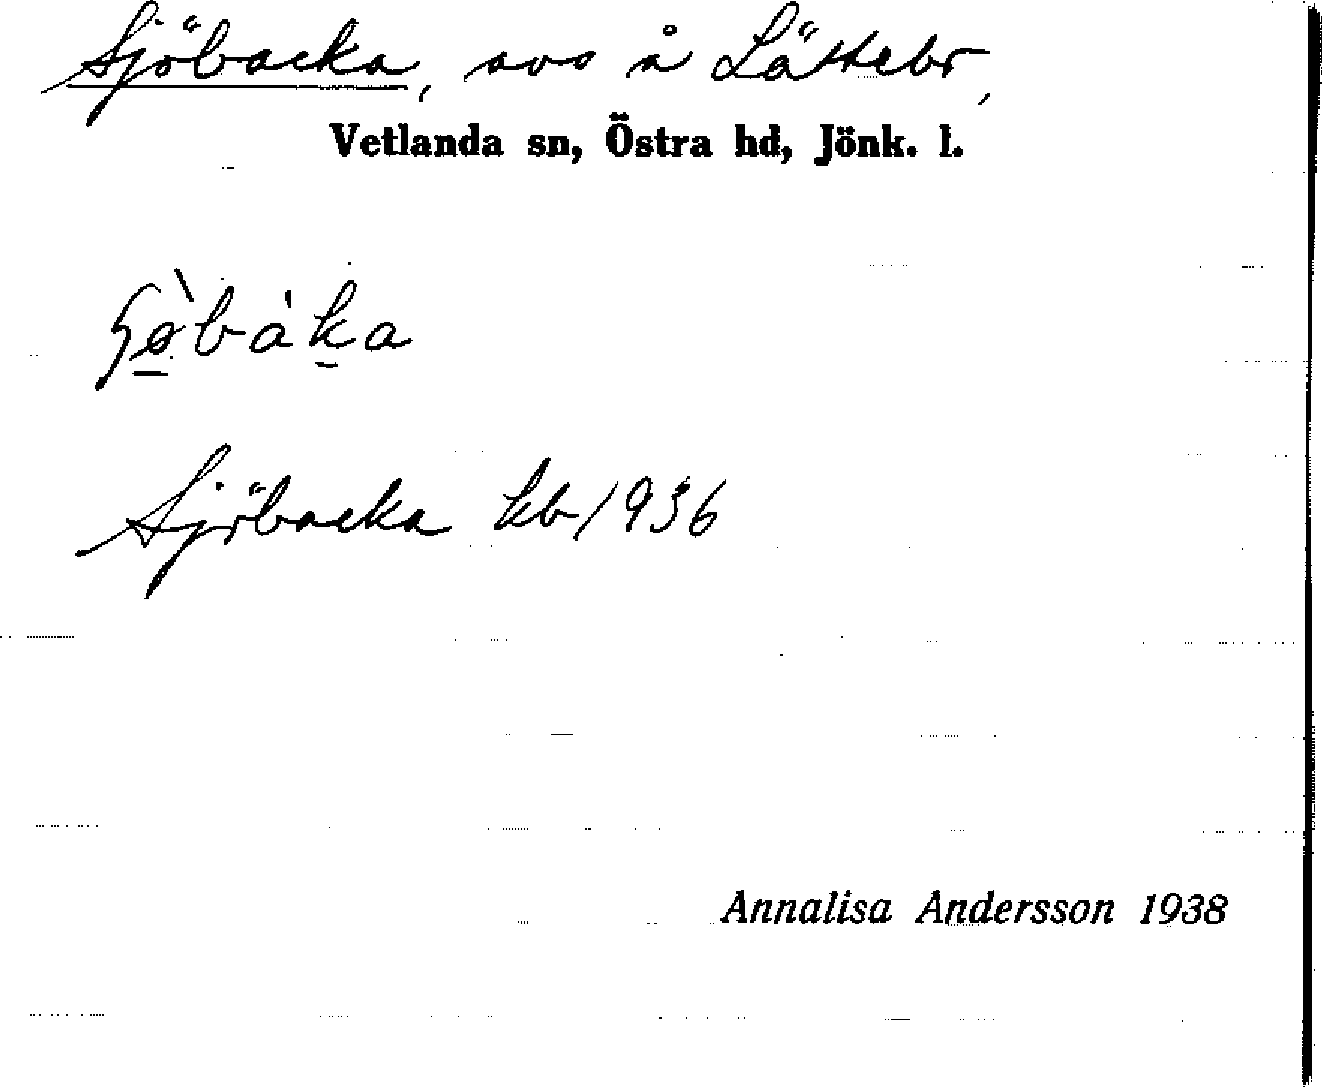 Sjöbacka, avs å Lättebr,
Vetlanda sn, Östra hd, Jönk. l.
Sjöbacka kb/1936
Annalisa Andersson 1938